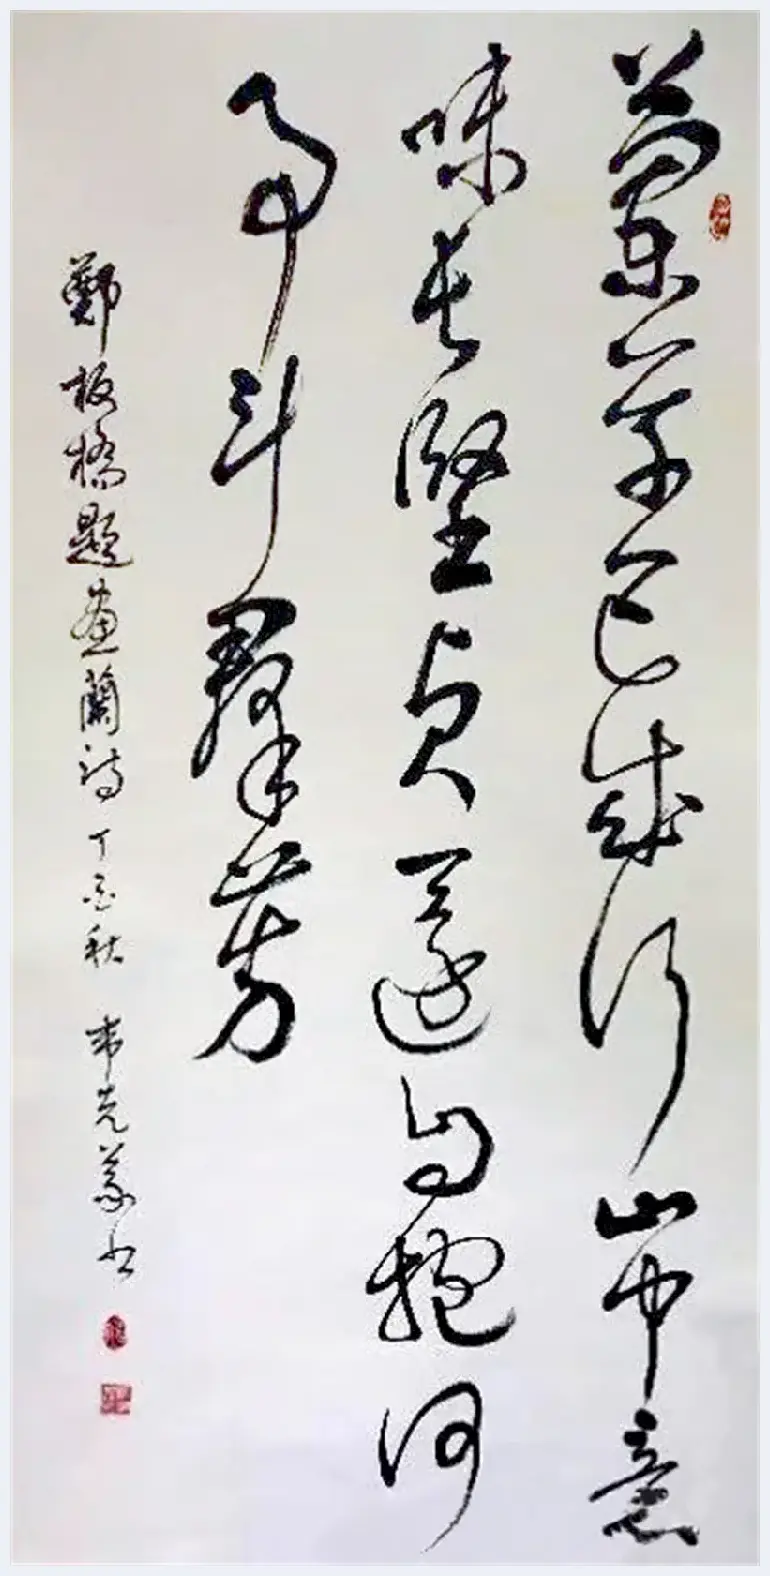 蘭草已成行山中意
味長堅貞還自抱何
事斗羣芳
鄭板橋題畫蘭詩 丁酉秋 韦克義书